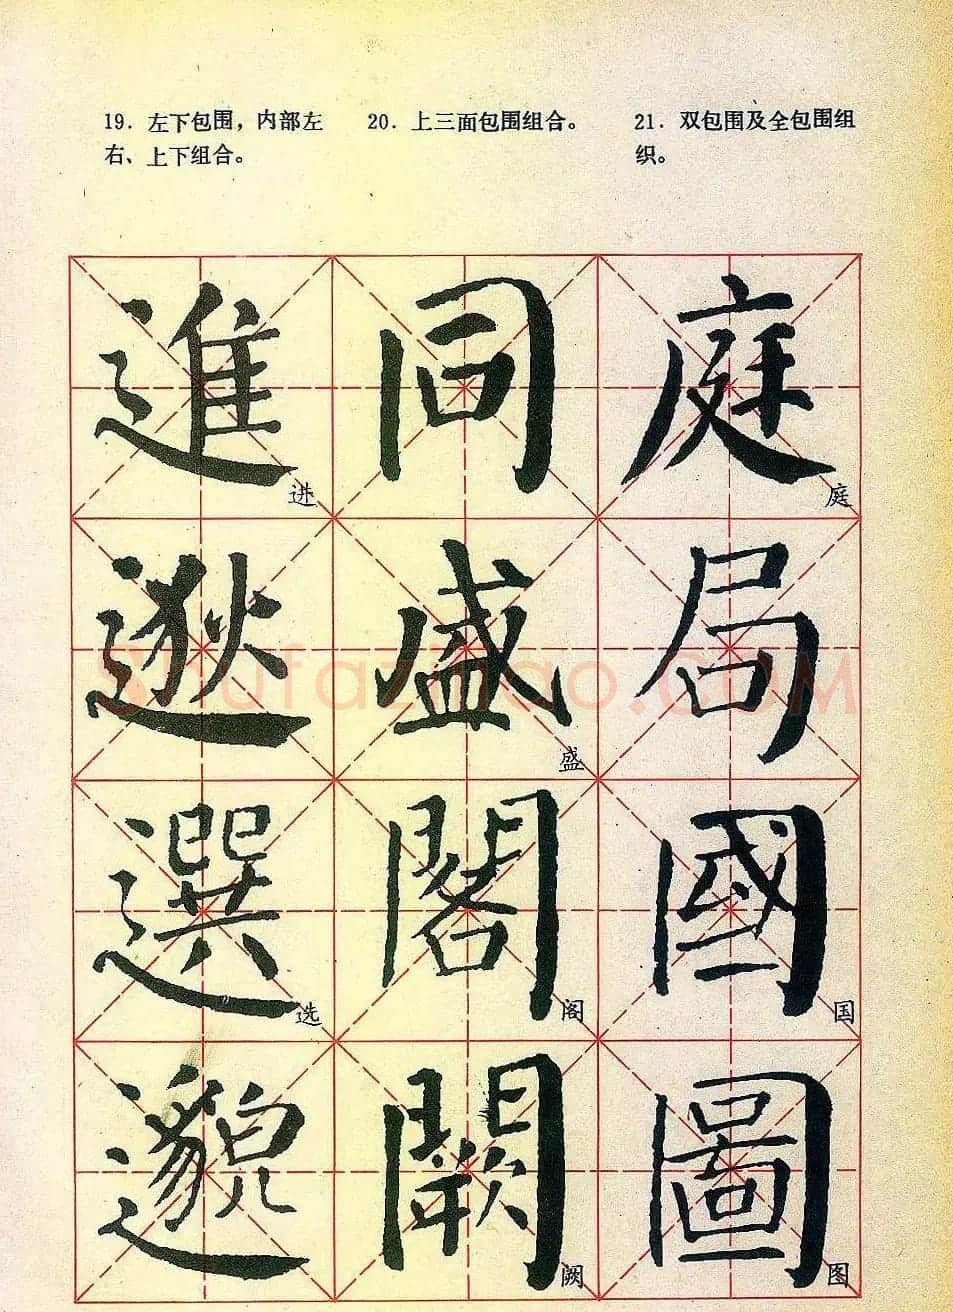 19. 左下包围，内部左
右、上下组合。
20. 上三面包围组合。
21. 双包围及全包围组
织。
進 同 庭
进 庭
逖 盛 局
盛
選 閣 國
选 阁 国
邈 闕 圖
阙 图
shufaziliao.com